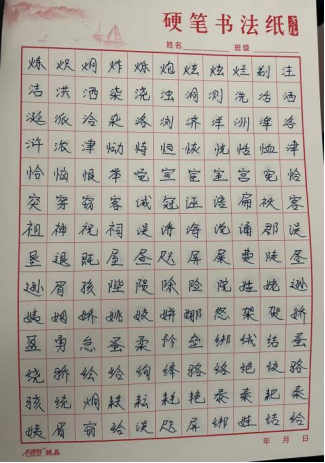 硬笔书法纸
姓名 班级
炼 炽 炯 炸 烁 炮 炫 炫 烂 剃 注
洁 洪 洒 柒 浇 浊 洞 测 洗 活 洒
涎 派 洽 染 洛 浏 济 洋 洲 津 洛
浒 浓 津 恸 恃 恒 恢 恍 恬 恤 津
恰 恼 恨 举 觉 宣 宦 室 宫 宪 恰
突 穿 窃 客 诫 冠 诬 语 扁 袄 客
祖 神 祝 祠 误 诱 诲 说 诵 郡 误
垦 退 既 屋 昼 咫 屏 屎 费 陡 昼
逊 眉 孩 陛 陨 除 险 院 娃 姥 逊
姨 姻 娇 姚 姣 姘 娜 怒 架 贺 娇
盈 勇 怠 蚤 柔 矜 垒 绑 绒 结 蚤
绕 骄 绘 给 绚 绛 骆 络 绝 绞 骆
骇 统 耕 耘 耗 艳 泰 秦
姨 眉 窃 给 误 咫 屏 绑 姓 结 给
年 月 日